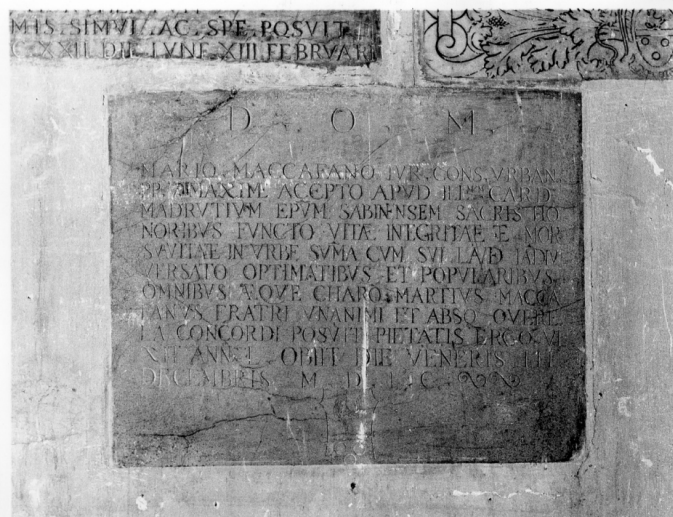 MIS. SIMVL. AC. SPE. POSVIT
C XXII. DIE LVNE. XIII FEBRVAR
D. O. M.
MARIO. MACCARANO. IVR. CONS. VRBAN.
MAXIME ACEPTO APVD ILL^MVM CARD
MADRVTIVM EPVM SABINENSEM SACRIS HO
NORIBVS FVNCTO VITÆ INTEGRITAE E MOR
SVAVITAE IN VRBE SVMA CVM SVI LAVD
VERSATO OPTIMATIBVS ET POPVLARIBVS
OMNIBVS ÆQVE CHARO MARTIVS MACCA
RANVS FRATRI VNANIMI ET ABSQ QVERE
LA CONCORDI POSVIT PIETATIS ERGO VI
XIT ANN. OBIIT DIE VENERIS III
DECEMBRIS M D I C